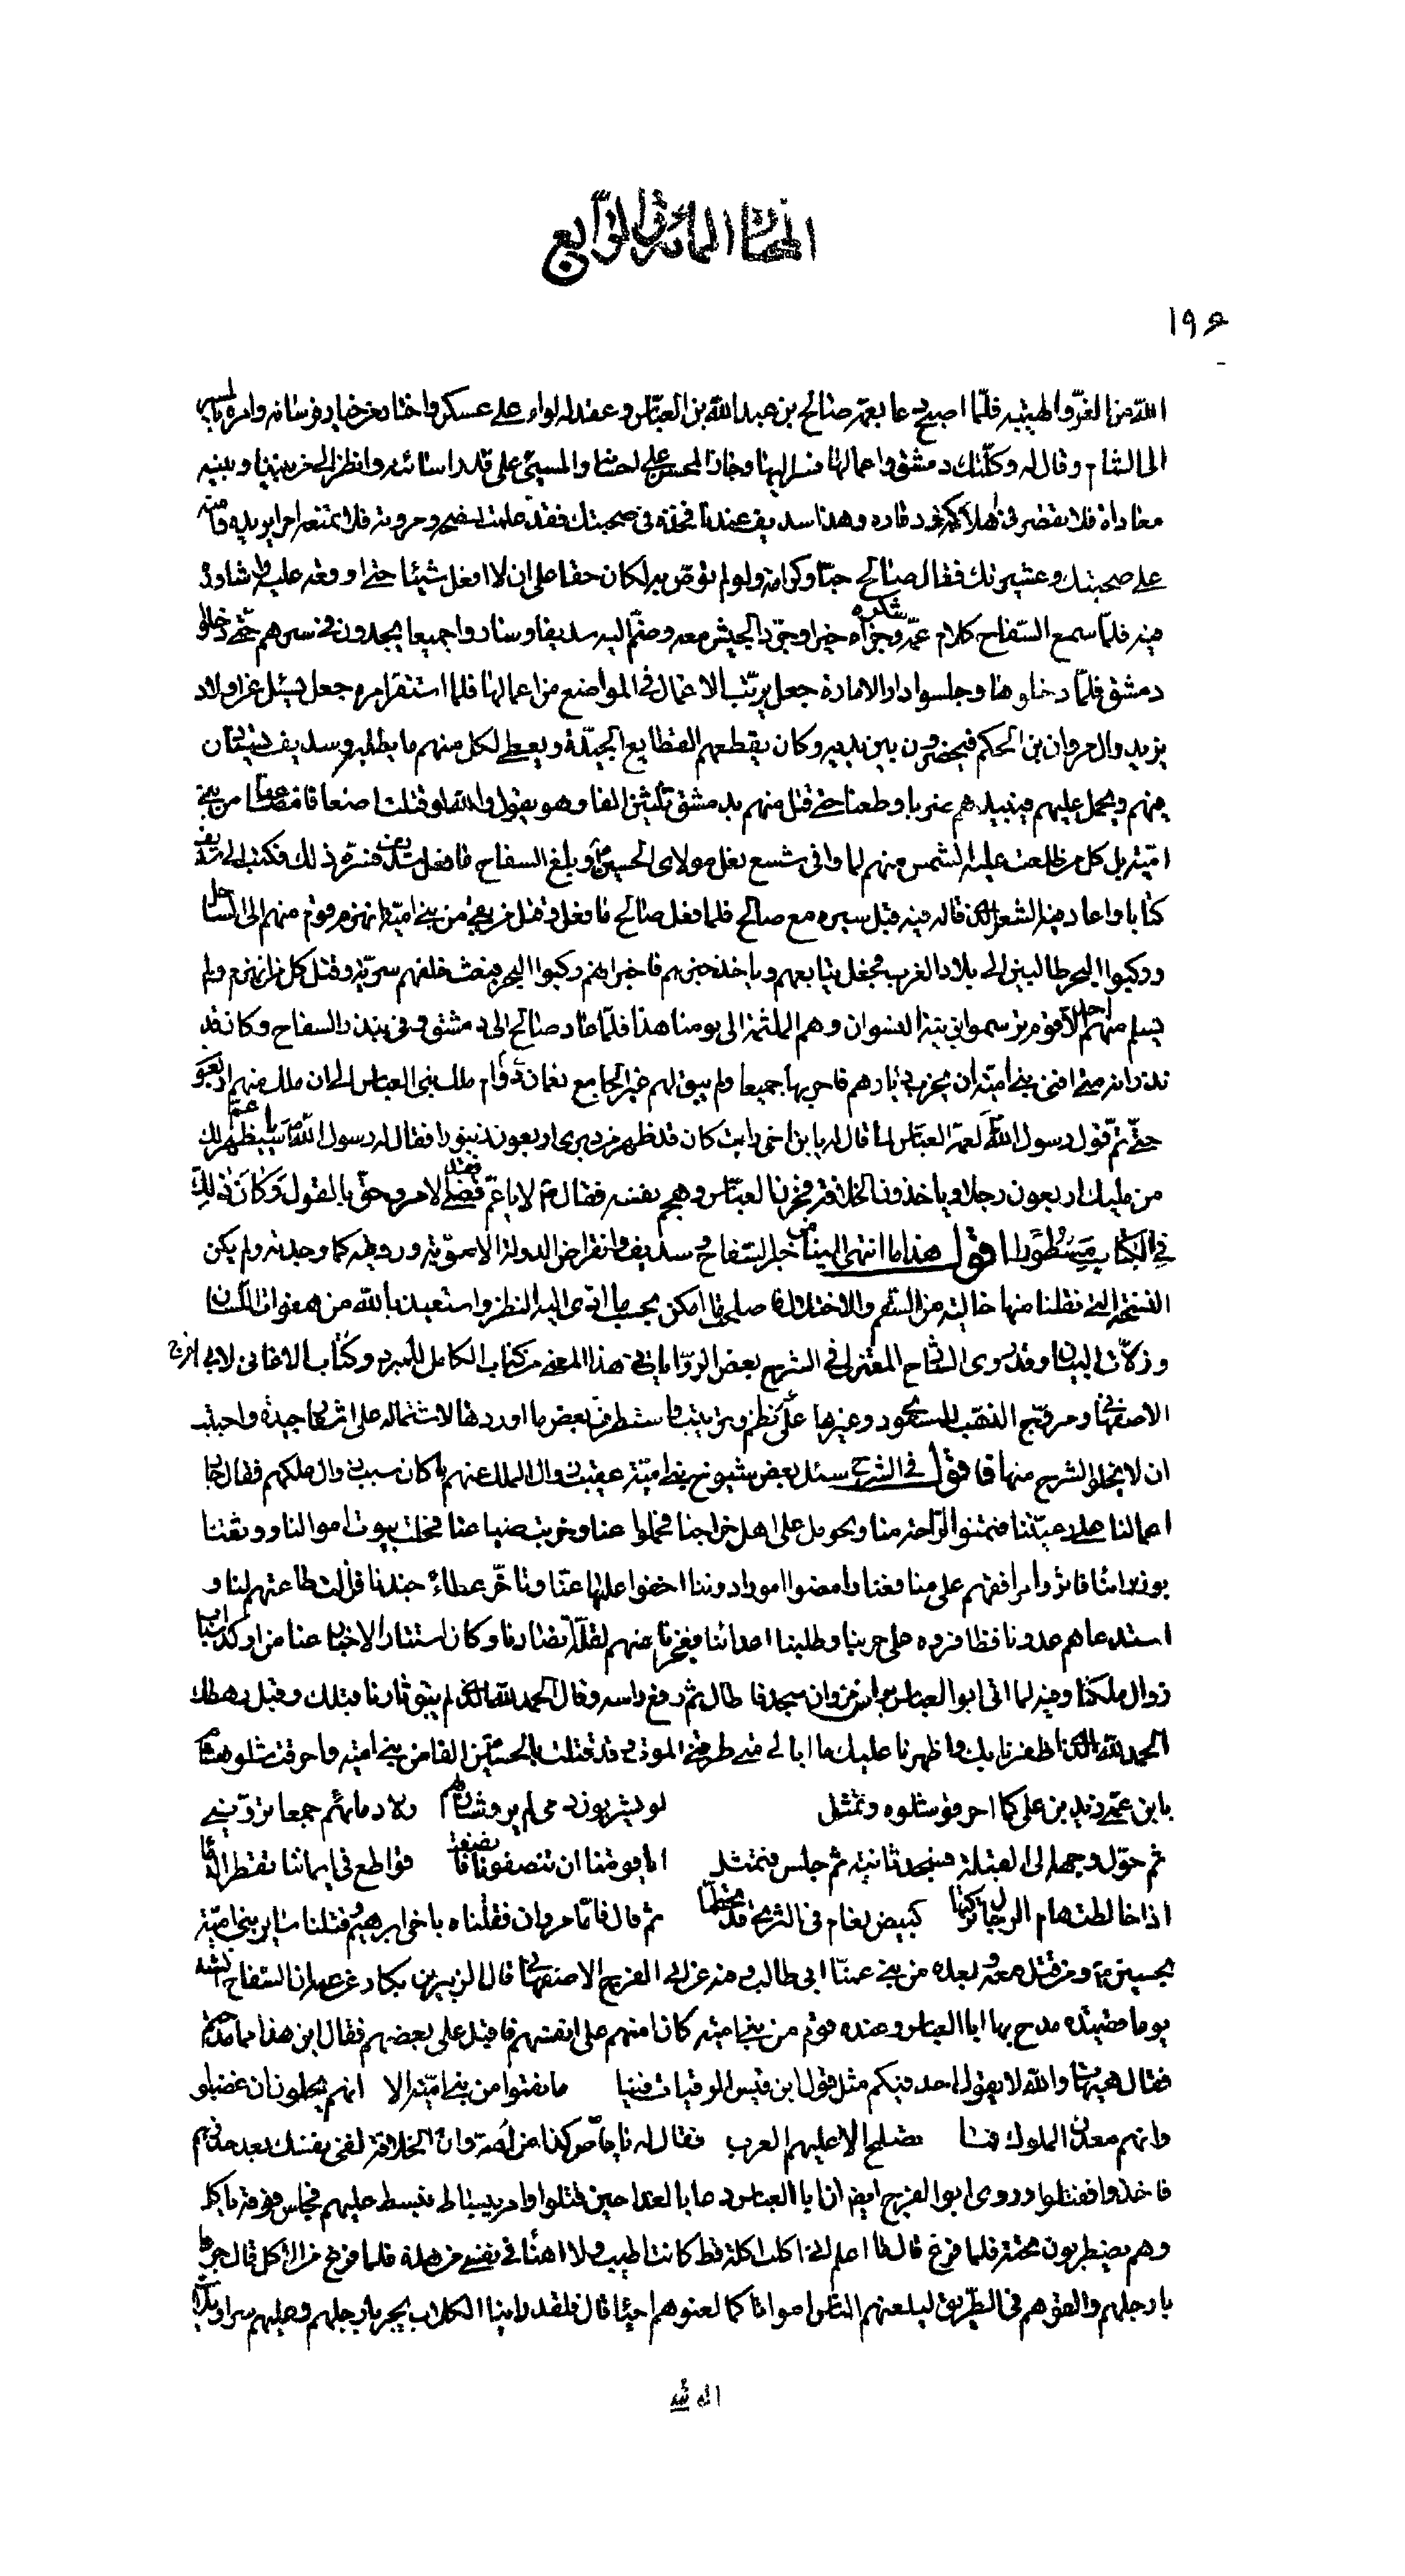 المختار المائة والرابع
۱۹۶
الله من الغرّ والهيبه فلمّا اصبح دعا بعمّه صالح بن عبدالله بن العبّاس وعقد له لواء على عسكر واختار من خيار فرسانه وامره بالمسير
الى الشام وقال له وكلّتك دمشق واعمالها فسر اليها وجاز المحسن على احسانه والمسيئ على قدر اسائته وانظر الى من بيننا وبينه
معاداة فلا تقصر في هلاكهم ودماره وهذا سديف عندنا فخذه في صحبتك فقد علمت نصحه ومروته فلا تمنعه امرا يريده فانه
على صحبتك وعشيرتك فقال صالح حبّا وكرامة ولو لم توصّ به لكان حقا على ان لا افعل شيئا حتى اوقفه عليه واشاوره
فيه فلمّا سمع السّفاح كلام عمّه شكره وجزاه خيرا وجرّد الجيش معه وضمّ اليه سديفا وساروا جميعا يجدون في سيرهم حتّى دخلوا
دمشق فلمّا دخلوها وجلسوا دار الامارة جعل يرتّب الاعمال في المواضع من اعمالها فلما استقر امره جعل يسئل عن اولاد
يزيد وال مروان بن الحكم فيحضرون بين يديه وكان يقطعهم القطايع الجيّدة ويعطى لكل منهم ما يطلبه وسديف يستأن
منهم ويحمل عليهم فيبيدهم ضربا وطعنا حتى قتل منهم بدمشق ثلثين الفا وهو يقول والله لو قتلت اضعافا مضاعفا من بنى
اميّة بل كل من طلعت عليه الشمس منهم لما وافى شسع نعل مولاى الحسين وبلغ السفاح ما فعل سديف فسرّه ذلك فكتب الى سديف
كتابا واعاد فيه الشعر الذى قاله فيه قبل سيره مع صالح فلما فعل صالح ما فعل وقتل من بقى من بنى اميّة وانهزم قوم منهم الى الساحل
وركبوا البحر طالبين الى بلاد الغرب فجعل يتابعهم وياخذ خبرهم فاخبر انهم ركبوا البحر فبعث خلفهم سريّة وقتل كل من انهزم ولم
يسلم منهم احد الا قوم تسموا بزى النسوان وهم الملثمة الى يومنا هذا فلمّا عاد صالح الى دمشق وفى بنذر السفاح وكان قد
نذر انه متى افنى بنى اميّة ان يخرب ديارهم فاخربها جميعا ولم يبق لهم غير الجامع نعمان دوام ملك بنى العباس الى ان ملك منهم اربعون
حتّى تمّ قول رسول الله لعمّه العبّاس لمّا قال له يا بن اخى رايت كان قد ظهر من دبرى اربعون زنبورا فقال له رسول الله يا عمّ سيظهر لك
من صلبك اربعون رجلا وياخذون الخلافة فخرنا لعبّاس وهجم بنفسه فقال لا يا عمّ فقد قضى الامر وحقّ بالقول وكان ذلك
في الكتاب مسطورا اقول هذا ما انتهى الينا من خبر السّفاح وسديف وانقراض الدولة الامويّة ورويته كما وجدته ولم يكن
النسخة التى نقلنا منها خالية من السقم والاختلال فاصلحتها ما امكن بحسب ما ادّى اليه النظر واستعيذ بالله من هفوات اللسان
وزلّات البيان وقد روى الشارح المعتزلى في الشرح بعض الروايات في هذا المعنى من كتاب الكامل للمبرد وكتاب الاغانى لابى الفرج
الاصفهانى ومروّج الذهب للمسعودى وغيرها على نظم وترتيب واستطرفت بعض ما اوردها لاشتماله على اشعار جيدة واحببت
ان لا يخلو الشرح منها فاقول في الشرح سئل بعض شيوخ بنى اميّة عقيب زوال الملك عنهم ما كان سبب زوال ملككم فقال جار
عمالنا على رعيّتنا فتمنوا الراحة منا وتحومل على اهل خراجنا فجلوا عنا وخربت ضياعنا فخلت بيوت اموالنا ووثقنا
بوزرائنا فاثروا مرافقهم على منافعنا وامضوا امورا دوننا اخفوا علمها عنّا وتأخّر عطاء جندنا فزالت طاعتهم لنا و
استدعاهم عدونا فظافروه على حربنا وطلبنا اعدائنا فعجزنا عنهم لقلّة انصارنا وكان استتار الاخبار عنا من اوكد اسباب
زوال ملكنا وفيه لما اتى ابو العباس برأس مروان سجد فاطال ثم رفع راسه وقال الحمد لله الذى لم يبق ثارنا قبلك وقبل رهطك
الحمد لله الذى اظفرنا بك واظهرنا عليك ما ابالى متى طرقنى الموت وقد قتلت بالحسين الفا من بنى اميّة واحرقت شلو هشام
بابن عمّى زيد بن على كما احرقوا شلوه وتمثل لو يشربون دمى لم يرو شاربهم ولا دمائهم جمعا تروّينى
ثم حوّل وجهه الى القبلة فسجد ثانية ثم جلس فتمثل ابى قومنا ان تنصفونا فانصفت قواطع في ايماننا تقطر الدما
اذا خالطت هام الرجال تركتها كبيض نعام في الثرى قد تحطّما ثم قال فامّا مروان فقتلناه باخى ابرهيم وقتلنا ساير بنى اميّة
بحسين ومن قتل معه وبعده من بنى عمنّا ابى طالب وفيه عن ابى الفرج الاصفهانى قال الزبير بن بكار عن عمه ان السّفاح انشد
يوما قصيدة مدح بها ابا العباس وعنده قوم من بنى اميّة كان امنهم على انفسهم فاقبل على بعضهم فقال اين هذا مما مدحتم
فقال هيهات والله لا يقول احد فيكم مثل قول ابن قيس الرقيات فينا ما نقموا من بنى اميّة الا انهم يحلمون ان غضبوا
وانهم معدن الملوك فما تصلح الا عليهم العرب فقال له يا ماصّ كذا من امّه وان الخلافة لفى نفسك بعد خذوهم
فاخذوا فقتلوا وروى ابو الفرج ايضا ان ابا العباس دعا بالغداء حين قتلوا وامر ببساط فبسط عليهم فجلس فوقه ياكل
وهم يضطربون تحته فلما فرغ قال ما اعلم انى اكلت اكلة قط كانت اطيب ولا اهنأ في نفسى من هذه فلما فرغ من الاكل قال جروا
بارجلهم والقوهم في الطريق ليلعنهم الناس امواتا كما لعنوهم احياء قال فلقد راينا الكلاب يجر بارجلهم وعليهم سراويلات